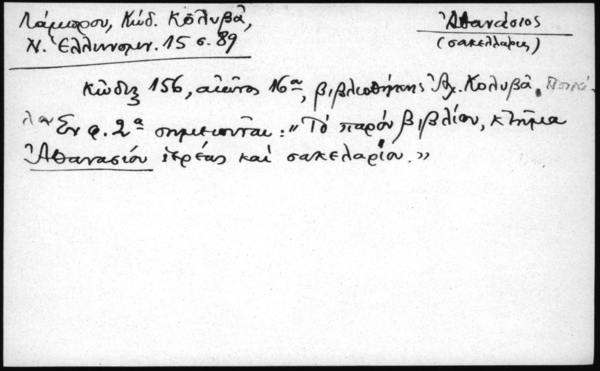 Λάμπρου, Κώδ. Κολυβᾶ,
Ν. Ἑλληνομν. 15 σ. 89
Ἀθανάσιος
(σακελλάριος)
Κῶδιξ 156, αἰῶνος 16ᾳ, βιβλιοθήκης Ἀλ. Κολυβᾶ.
Ἐν φ. 2ᾳ σημειοῦται: "Τὸ παρὸν βιβλίον, κτῆμα
Ἀθανασίου ἱερέως καὶ σακελαρίου."